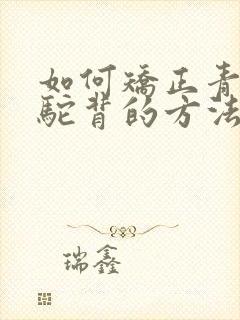 如何矫正青
驼背的方法
瑞鑫